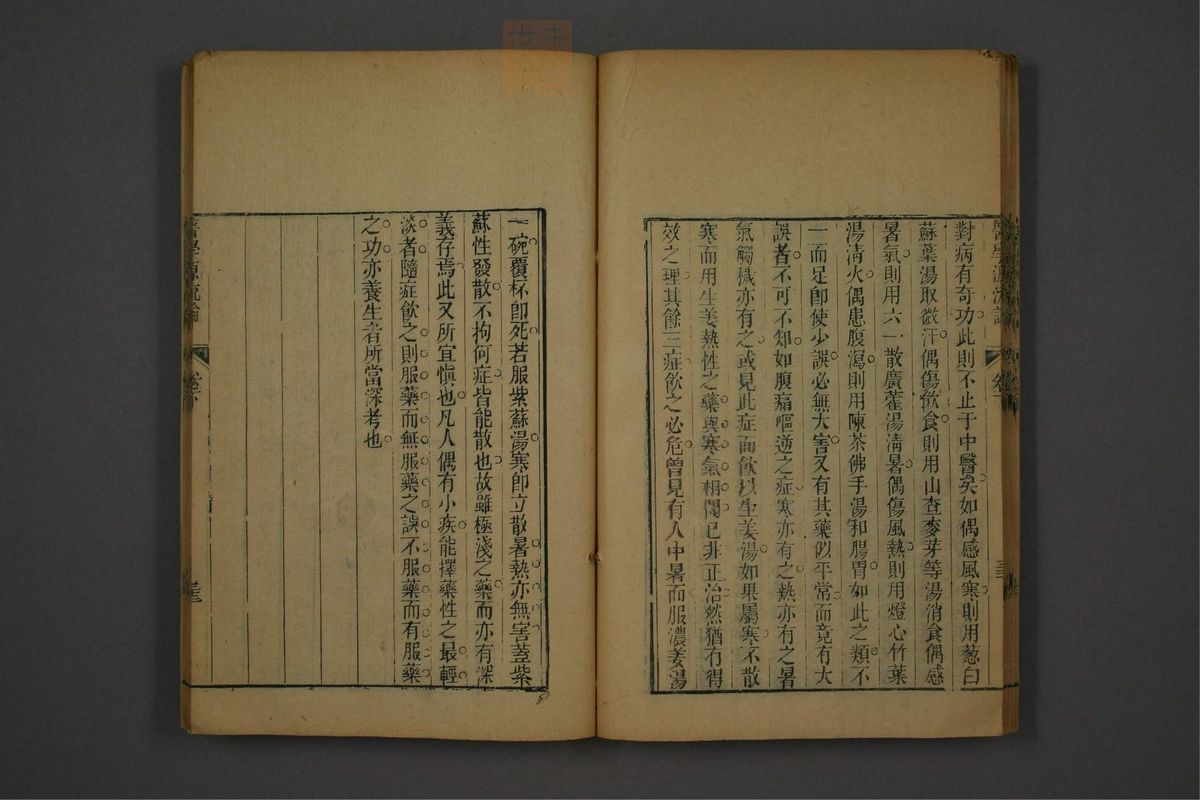 對病有奇功此則不止于中醫矣如偶感風寒則用葱白
蘇葉湯取微汗偶傷飲食則用山查麥芽等湯消食偶感
暑氣則用六一散廣藿湯淸暑偶傷風熱則用燈心竹葉
湯淸火偶患腹瀉則用陳茶佛手湯和腸胃如此之類不
一而足卽使少誤必無大害又有其藥似平常而竟有大
誤者不可不知如腹痛嘔逆之症寒亦有之熱亦有之暑
氣觸穢亦有之或見此症而飲以生姜湯如果屬寒不散
寒而用生姜熱性之藥與寒氣相鬭已非正治然猶有得
效之理其餘三症飲之必危曾見有人中暑而服濃姜湯
一碗覆杯卽死若服紫蘇湯寒卽立散暑熱亦無害葢紫
蘇性發散不拘何症皆能散也故雖極淺之藥而亦有深
義存焉此又所宜愼也凡人偶有小疾能擇藥性之最輕
淡者隨症飲之則服藥而無服藥之誤不服藥而有服藥
之功亦養生者所當深考也
醫學源流論
卷下